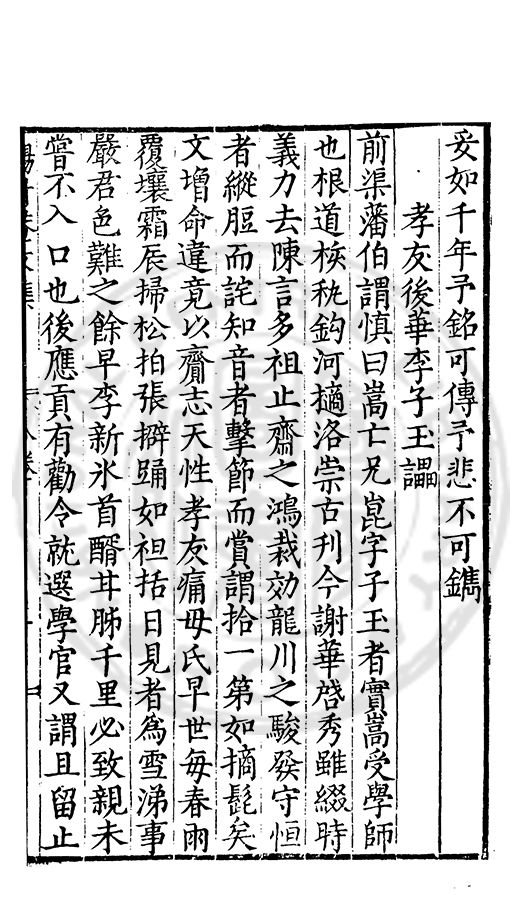 妥如千年予銘可傳予悲不可鐫
孝友後華李子玉讄
前渠瀋伯謂慎曰嵩亡兄崑字子玉者實嵩受學師
也根道棭秇鈎河擿洛崇古刋今謝華啓秀雖綴時
義力去陳言多祖止齋之鴻裁効龍川之駿發守恒
者縱脰而詫知音者擊節而賞謂拾一第如摘髭矣
文增命違竟以齎志天性孝友痛毋氏早世每春雨
覆壤霜辰掃松拍張擗踊如袒括日見者為雪涕事
嚴君色難之餘早李新氷首醑井胏千里必致親未
嘗不入口也後應貢有勸令就選學官又謂且留止